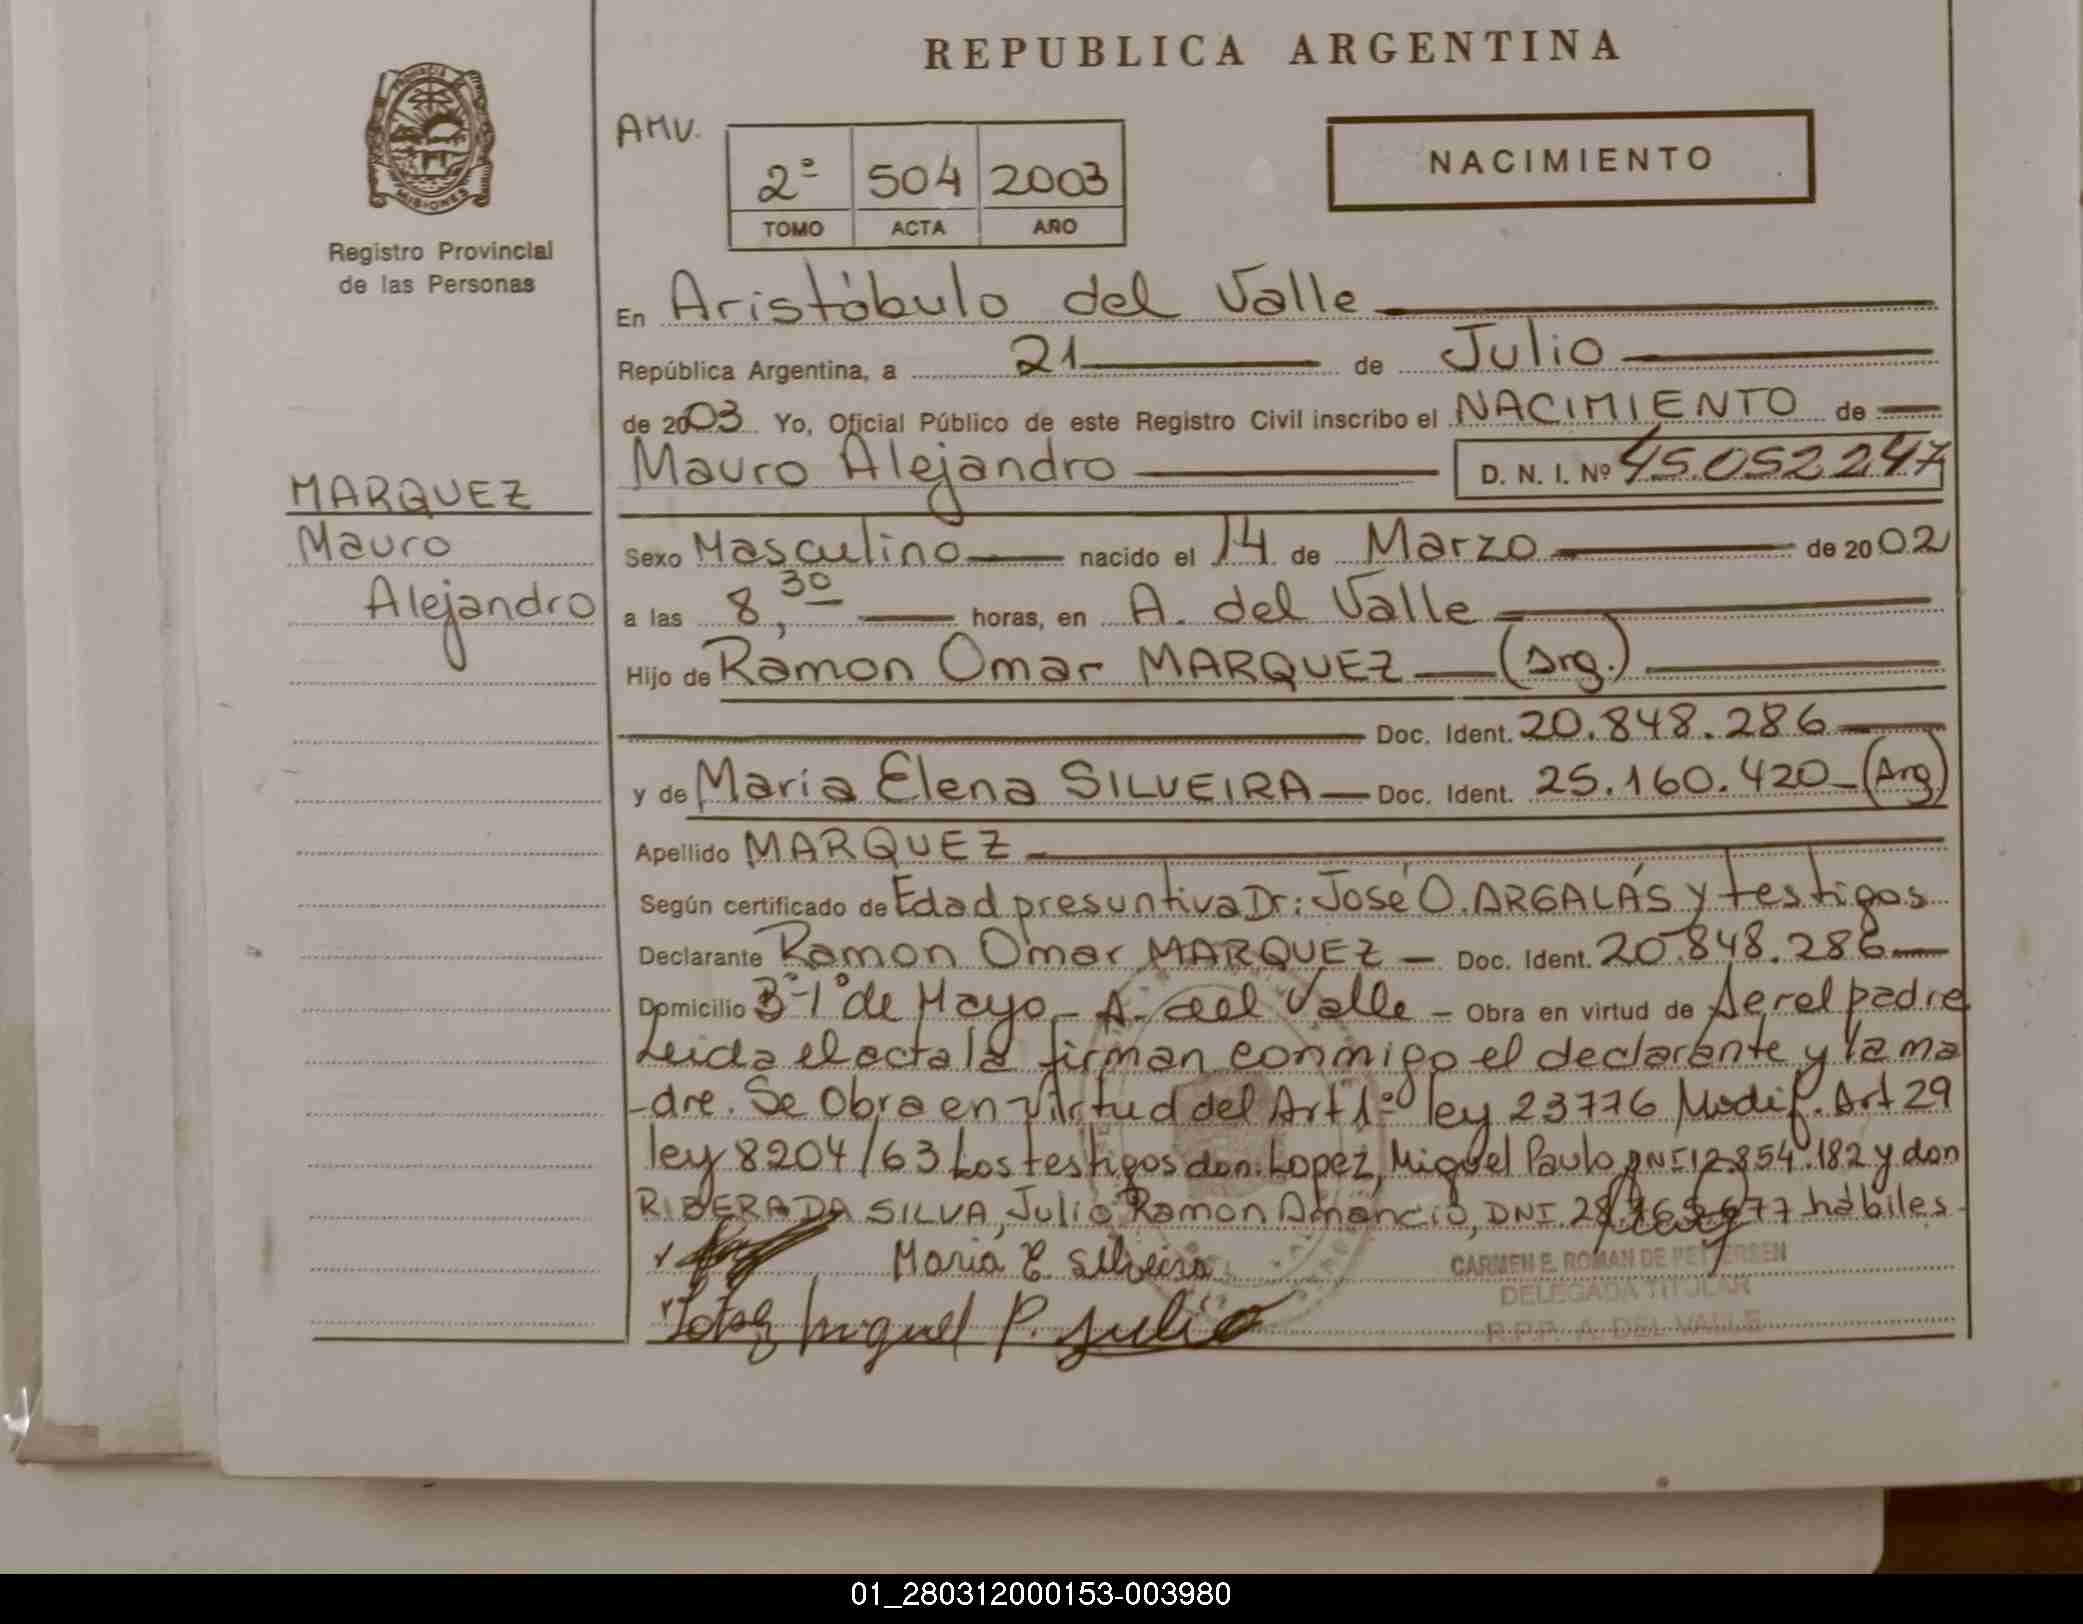 REPUBLICA ARGENTINA
PROVINCIA
MISIONES
Registro Provincial
de las Personas
AMV.
2º 504 2003
TOMO ACTA AÑO
NACIMIENTO
En Aristóbulo del Valle
República Argentina, a 21 de Julio
de 2003 Yo, Oficial Público de este Registro Civil inscribo el NACIMIENTO de
Mauro Alejandro D. N. I. Nº 45.052247
MARQUEZ
Mauro
Alejandro
Sexo Masculino nacido el 14 de Marzo de 2002
a las 8,30 horas, en A. del Valle
Hijo de Ramon Omar MARQUEZ (Arg.)
Doc. Ident. 20.848.286
y de Maria Elena SILVEIRA Doc. Ident. 25.160.420 (Arg)
Apellido MARQUEZ
Según certificado de Edad presuntiva Dr: José O. ARGALÁS y testigos
Declarante Ramon Omar MARQUEZ Doc. Ident. 20.848.286
Domicilio Bº 1º de Mayo - A. del Valle - Obra en virtud de ser el padre
Leida el acta la firman conmigo el declarante y la ma
-dre. Se Obra en virtud del Art 1º ley 23776 Modif. Art 29
ley 8204/63 Los testigos don: Lopez, Miguel Paulo DNI 12.854.182 y don
RIBERADA SILVA, Julio Ramon Amancio, DNI. hábiles
Maria E Silveira
CARMEN E. ROMAN DE PETTERSEN
DELEGADA TITULAR
R.P.P. A. DEL VALLE
Lopez Miguel P. Julio
01_280312000153-003980